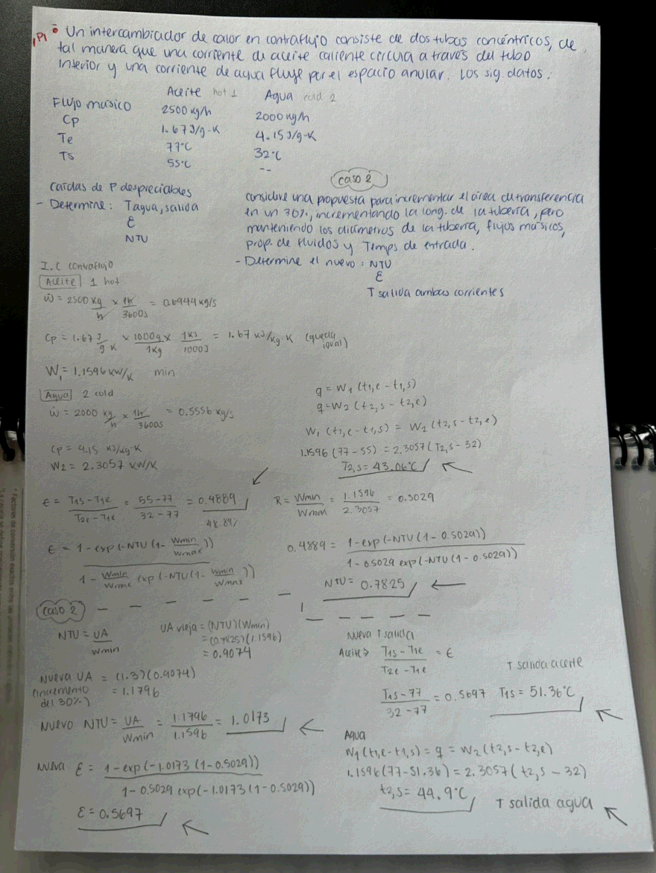 P1 • Un intercambiador de calor en contraflujo consiste de dos tubos concéntricos, de
tal manera que una corriente de aceite caliente circula a través del tubo
interior y una corriente de agua fluye por el espacio anular. Los sig datos:
Aceite hot 1 Agua cold 2
Flujo másico 2500 kg/h 2000 kg/h
Cp 1.67 J/g-K 4.15 J/g-K
Te 77°C 32°C
Ts 55°C --
caídas de P despreciables
- Determine: Tagua, salida
ε
NTU
caso 2
considere una propuesta para incrementar el área de transferencia
en un 30%, incrementando la long. de la tubería, pero
manteniendo los diámetros de la tubería, flujos másicos,
prop. de fluidos y Temps de entrada.
- Determine el nuevo: NTU
ε
T salida ambas corrientes
I.C contraflujo
Aceite 1 hot
ω = 2500 kg/h × 1h/3600s = 0.6944 kg/s
Cp = 1.67 J/g K × 1000g/1kg × 1KJ/1000J = 1.67 KJ/kg-K (queda igual)
W1 = 1.1596 KW/K min
Agua 2 cold
ω = 2000 kg/h × 1h/3600s = 0.5556 kg/s
Cp = 4.15 KJ/kg-K
W2 = 2.3057 KW/K
q = W1 (t1,e - t1,s)
q = W2 (t2,s - t2,e)
W1 (t1,e - t1,s) = W2 (t2,s - t2,e)
1.1596 (77-55) = 2.3057 (T2,s - 32)
T2,s = 43.06°C
ε = T1s - T1e / T2e - T1e = 55-77 / 32-77 = 0.4889
48.89%
R = Wmin / Wmax = 1.1596 / 2.3057 = 0.5029
ε = 1 - exp(-NTU(1 - Wmin/Wmax)) / 1 - Wmin/Wmax exp(-NTU(1 - Wmin/Wmax))
0.4889 = 1 - exp(-NTU(1-0.5029)) / 1 - 0.5029 exp(-NTU(1-0.5029))
NTU = 0.7825
caso 2
NTU = UA / Wmin
UA vieja = (NTU)(Wmin)
= (0.7825)(1.1596)
= 0.9074
Nueva UA = (1.3)(0.9074)
(incremento del 30%) = 1.1796
NUEVO NTU = UA / Wmin = 1.1796 / 1.1596 = 1.0173
Nueva ε = 1 - exp(-1.0173 (1-0.5029)) / 1 - 0.5029 exp(-1.0173 (1-0.5029))
ε = 0.5697
Nueva T salida
Aceite > T1s - T1e / T2e - T1e = ε
T salida aceite
T1s - 77 / 32 - 77 = 0.5697 T1s = 51.36°C
Agua
W1(t1,e - t1,s) = q = W2(t2,s - t2,e)
1.1596(77-51.36) = 2.3057(t2,s - 32)
t2,s = 44.9°C T salida agua